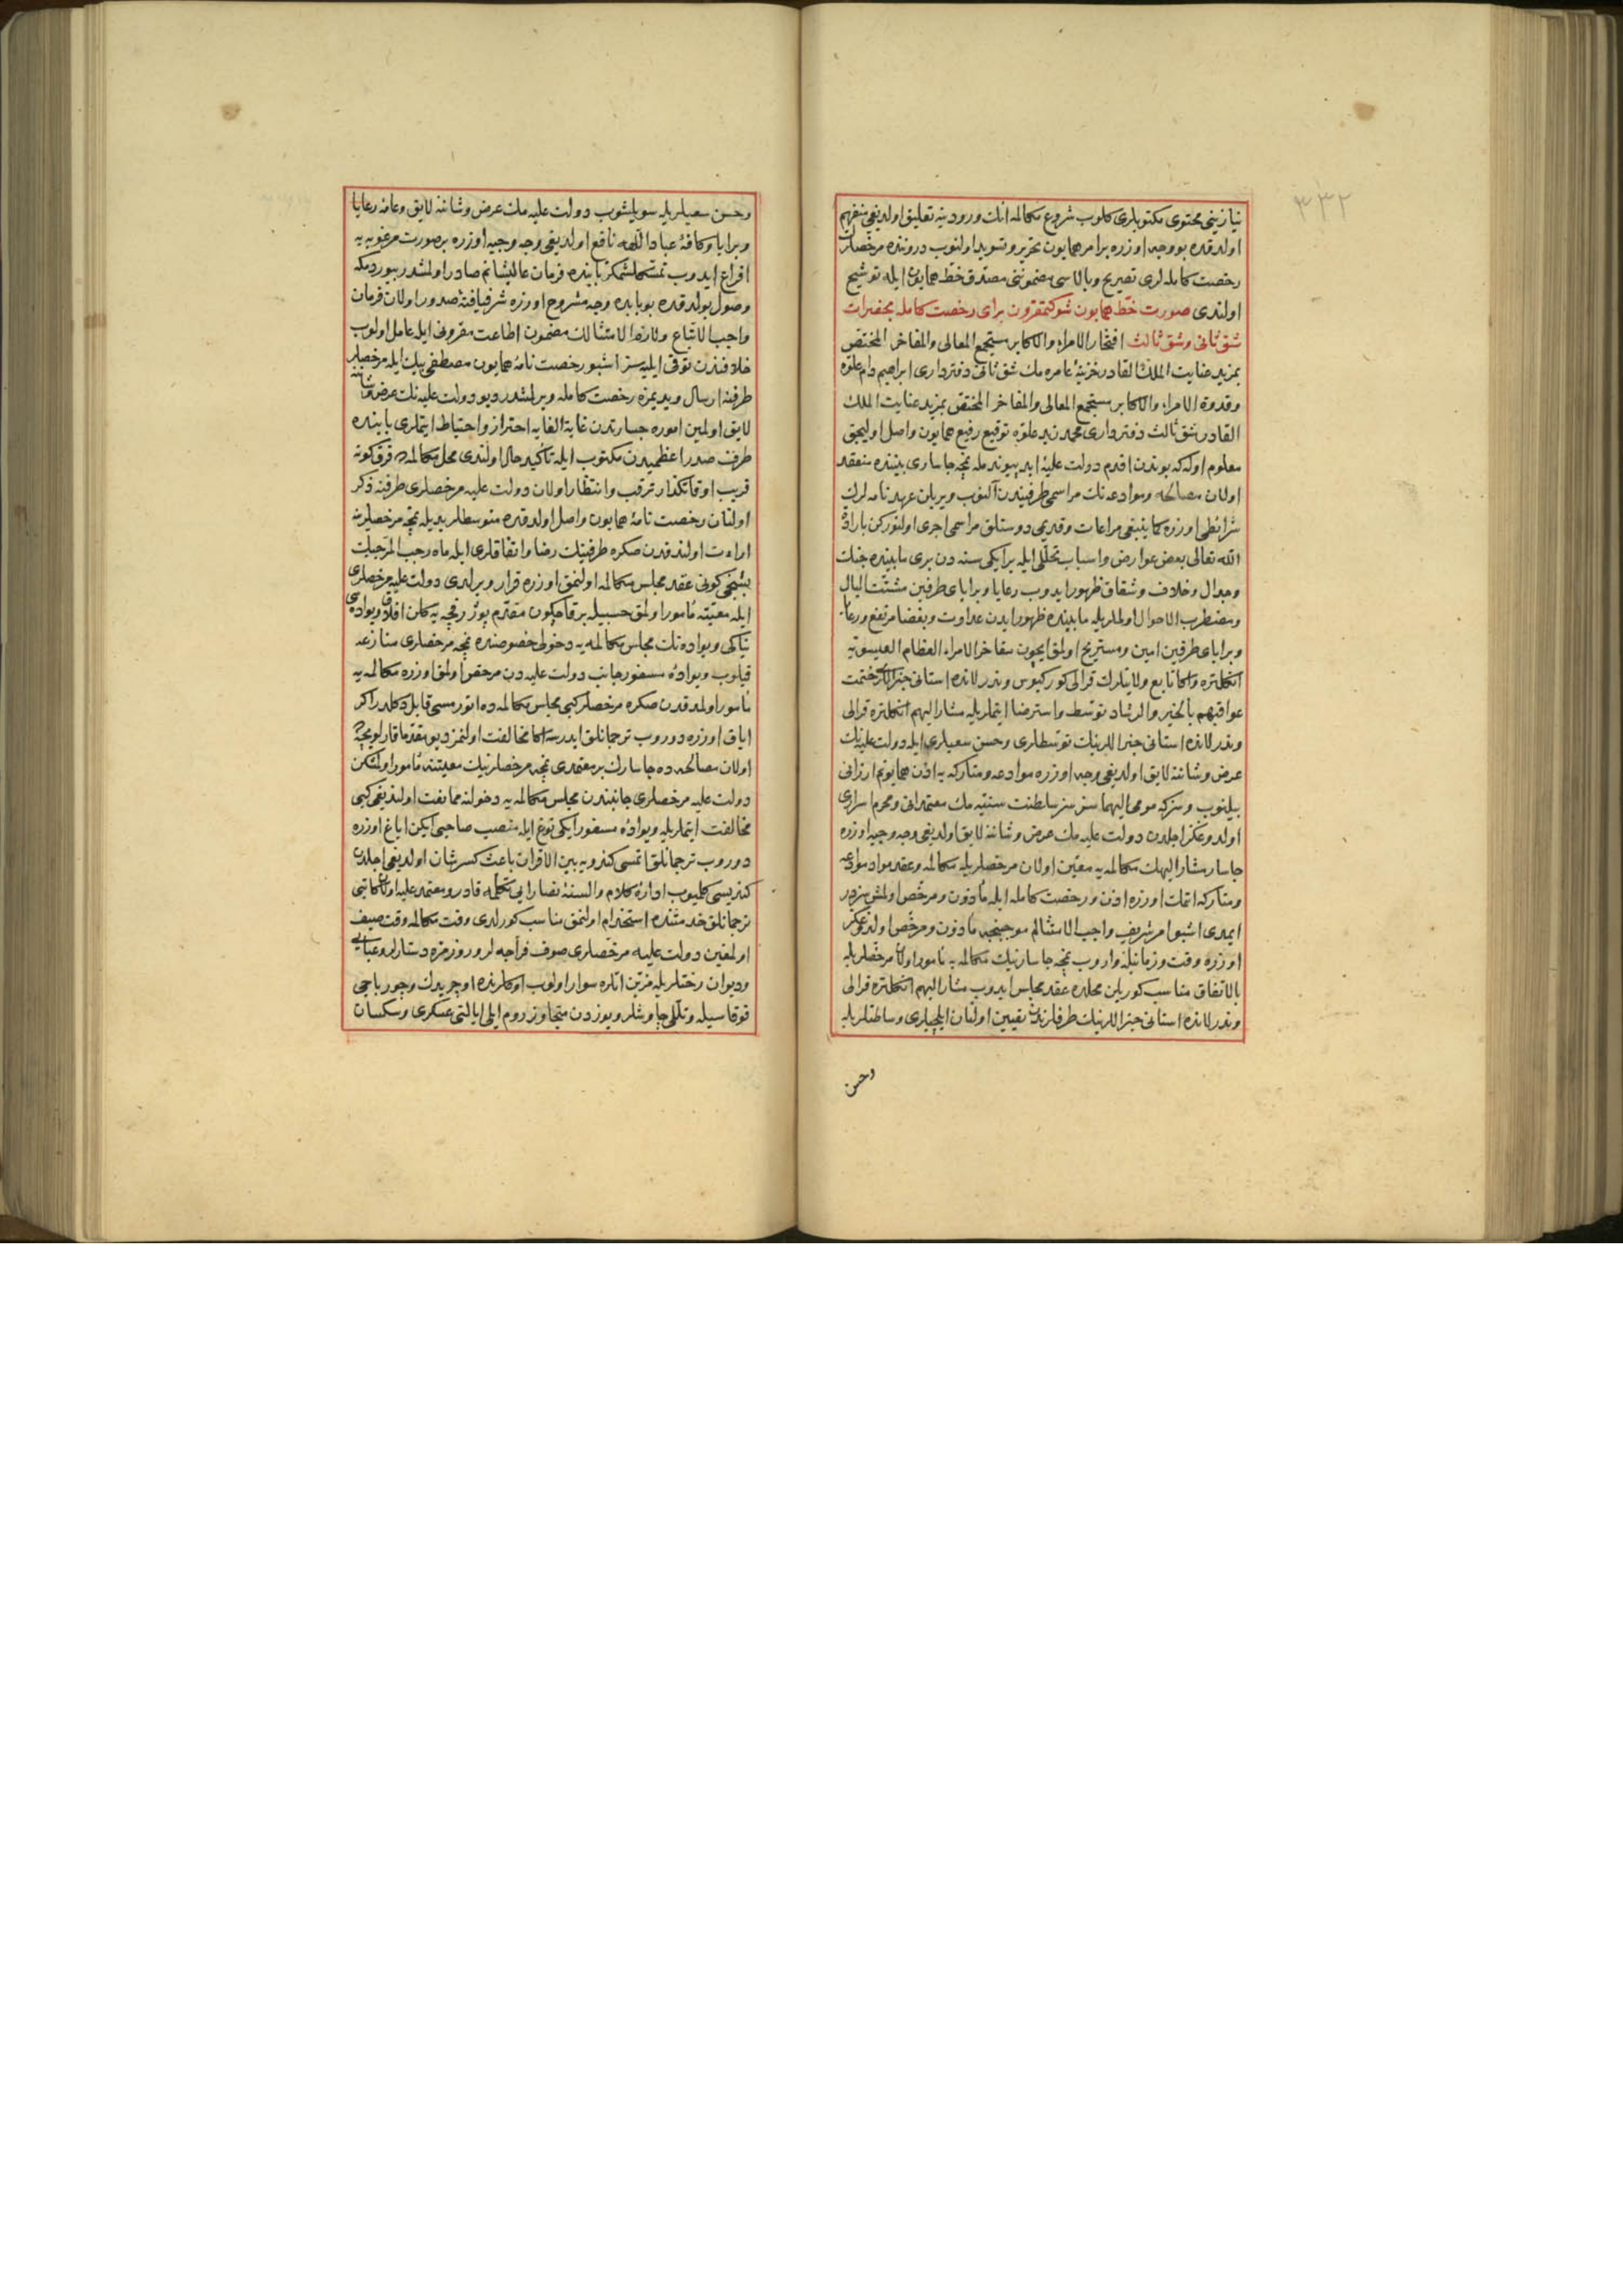 ٣٣٢
نیازینی محتوی مکتوبلری کلوب شروع مکالمه انك ورودینه تعلیق اولدیغی منفهم
اولدقده بو وجه اوزره بر امر همایون تحریر و تسوید اولنوب دروننده مرخصلرك
رخصت کامله لری تصریح و بالاسی مضموننی مصدق خط همایون ایله توشیح
اولندی صورت خط همایون شوکتمقرون برای رخصت کامله بحضرات
شق ثانی وشق ثالث افتخار الامراء والاکابر مستجمع المعالی والمفاخر المختص
بمزید عنایت الملك القادر خزینۀ عامره مك شق ثانی دفترداری ابراهیم دام علوه
وقدوة الامراء والاکابر مستجمع المعالی والمفاخر المختص بمزید عنایت الملك
القادر شق ثالث دفترداری محمد زید علوه توقیع رفیع همایون واصل اولیجق
معلوم اوله که بوندن اقدم دولت علیۀ ابد پیوندمله نمچه جاساری بیننده منعقد
اولان مصالحه وموادعه نك مراسمی طرفیندن آلنوب ویریلن عهدنامه لرك
شرائطی اوزره کما ینبغی مراعات وقدیمی دوستلق مراسمی اجری اولنورکن بارادۀ
الله تعالی بعض عوارض واسباب تخللی ایله بر ایکی سنه دن بری مابینده جنك
وجدال وخلاف وشقاق ظهور ایدوب رعایا وبرایای طرفین مشتت البال
ومضطرب الاحوال اولملریله مابینده ظهور ایدن عداوت وبغضا مرتفع ورعایا
وبرایای طرفین امین ومستریح اولمق ایچون مفاخر الامراء العظام العیسویه
انکلتره واکا تابع ولایتلرك قرالی کورکیوس وندرلانده استانی جنراللری ختمت
عواقبهم بالخیر والرشاد توسط واسترضا ایتملریله مشار الیهم انکلتره قرالی
وندرلانده استانی جنراللرینك توسطلری وحسن سعیلری ایله دولت علیه نك
عرض وشاننه لایق اولدیغی وجه اوزره موادعه ومتارکه یه اذن همایونم ارزانی
بیلنوب وسزکه مومی الیهما سز سز سلطنت سنیه مك معتمدانی ومحرم اسراری
اولدوغکز اجلدن دولت علیه مك عرض وشاننه لایق اولدیغی وجه وجیه اوزره
جاسار مشار الیهك مکالمه یه معین اولان مرخصلریله مکالمه وعقد مواد موادعه
ومتارکه اتمك اوزره اذن ورخصت کامله ایله مأذون ومرخص اولمش سزدر
ایمدی اشبو امر شریف واجب الامتثالم موجبنجه مأذون ومرخص اولدوغکز
اوزره وقت وزماننله واروب نمچه جاسارینك مکالمه یه مأمور اولان مرخصلریله
بالاتفاق مناسب کوریلن محلده عقد مجلس ایدوب مشار الیهم انکلتره قرالی
وندرلانده استانی جنراللرینك طرفلرندن تعیین اولنان ایلچیلری وساطتلریله
وحسن
وحسن سعیلریله سویلشوب دولت علیه مك عرض وشاننه لایق وعامۀ رعایا
وبرایا وکافۀ عباد اللهه نافع اولدیغی وجه وجیه اوزره بر صورت مرغوبه یه
افراغ ایدوب تمسکلشمکز بابنده فرمان عالیشانم صادر اولمشدر بیوردم که
وصول بولدقده بو بابده وجه مشروح اوزره شرفیافتۀ صدور اولان فرمان
واجب الاتباع ولازم الامتثالك مضمون اطاعت مقرونی ایله عامل اولوب
خلافندن توقی ایلیه سز اشبو رخصت نامۀ همایون مصطفی بیك ایله مرخصلر
طرفنه ارسال ویدیمزه رخصت کامله ویرلمشدر دیو دولت علیه نك عرض وشاننه
لایق اولمین اموره جسارتدن غایة الغایه احتراز واحتیاط ایتملری بابنده
طرف صدر اعظمیدن مکتوب ایله تأکید حال اولندی محل مکالمه ده قرق کونه
قریب اوقاتکذار ترقب وانتظار اولان دولت علیه مرخصلری طرفنه ذکر
اولنان رخصت نامۀ همایون واصل اولدقده متوسطلر یدیله نمچه مرخصلرینه
اراءت اولندقدن صکره طرفینك رضا واتفاقلری ایله ماه رجب المرجبك
بشنجی کونی عقد مجلس مکالمه اولنمق اوزره قرار ویرلدی دولت علیه مرخصلری
ایله معیته مأمور اولمق حسبیله بر قاچ کون مقدم پوزرفچه یه کلن افلاق ویواده سی
نیاکی ویواده نك مجلس مکالمه یه دخولی خصوصنده نمچه مرخصلری منازعه
قیلوب ویوادۀ مسفور جانب دولت علیه دن مرخص اولمق اوزره مکالمه یه
مأمور اولمدقدن صکره مرخصلر کبی مجلس مکالمه ده اتورمسی قابل دکلدر اکر
ایاق اوزره دوروب ترجمانلق ایدرسه اکا مخالفت اولنمز دیو مقدما قارلوفچه
اولان مصالحه ده جاسارك بر معتمدی نمچه مرخصلرینك معیتنه مأمور اولمشکن
دولت علیه مرخصلری جانبندن مجلس مکالمه یه دخولنه ممانعت اولندیغی کبی
مخالفت ایتملریله ویوادۀ مسفور ایکی توغ ایله منصب صاحبی ایکن ایاغ اوزره
دوروب ترجمانلق اتمسی کندویه بین الاقران باعث کسر شان اولدیغی اجلدن
کندیسی کلمیوب ادارۀ کلام والسنۀ نصارایی تکلمه قادر ومعتمد علیه اولان کاتبی
ترجمانلق خدمتنده استخدام اولنمق مناسب کورلدی وقت مکالمه وقت صیف
اولمغین دولت علیه مرخصلری صوف فراجه لر وروزمره دستارلر وعبایی
ودیوان رختلریله مزین اتلره سوار اولوب اوکلرنده اوچر یدك وچورباجی
قوقاسیله وتللی چاوشلر ویوزدن متجاوز روم ایلی ایالتی عسکری وسکسان